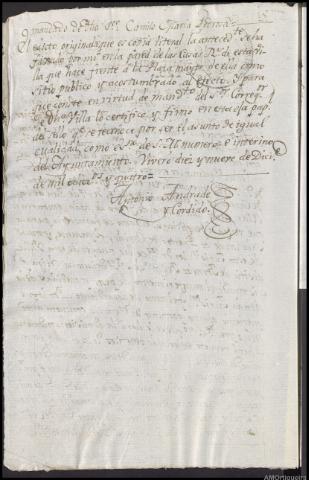 mandado de dho Sor. Camilo Maria
El edicto original de que es copia literal la antecedte. se ha
fijado por mi en la pared de las Casas Rs. de esta Vi-
lla que hace frente á la Plaza mayor de ella como
sitio publico y acostumbrado al efecto. Y para
que conste en virtud de mandto. del Sr. Corregr.
de dha. Villa lo certifico, y firmo en esta foja pap.l
de por ser el asunto de igual
cualidad, como esno. de S. M. numero é interino
del Ayuntamiento. Vivero diez y nueve de Dici-
de mil ochos. y quatro=
Antonio Andrade
y Cordido.
AMOrtigueira